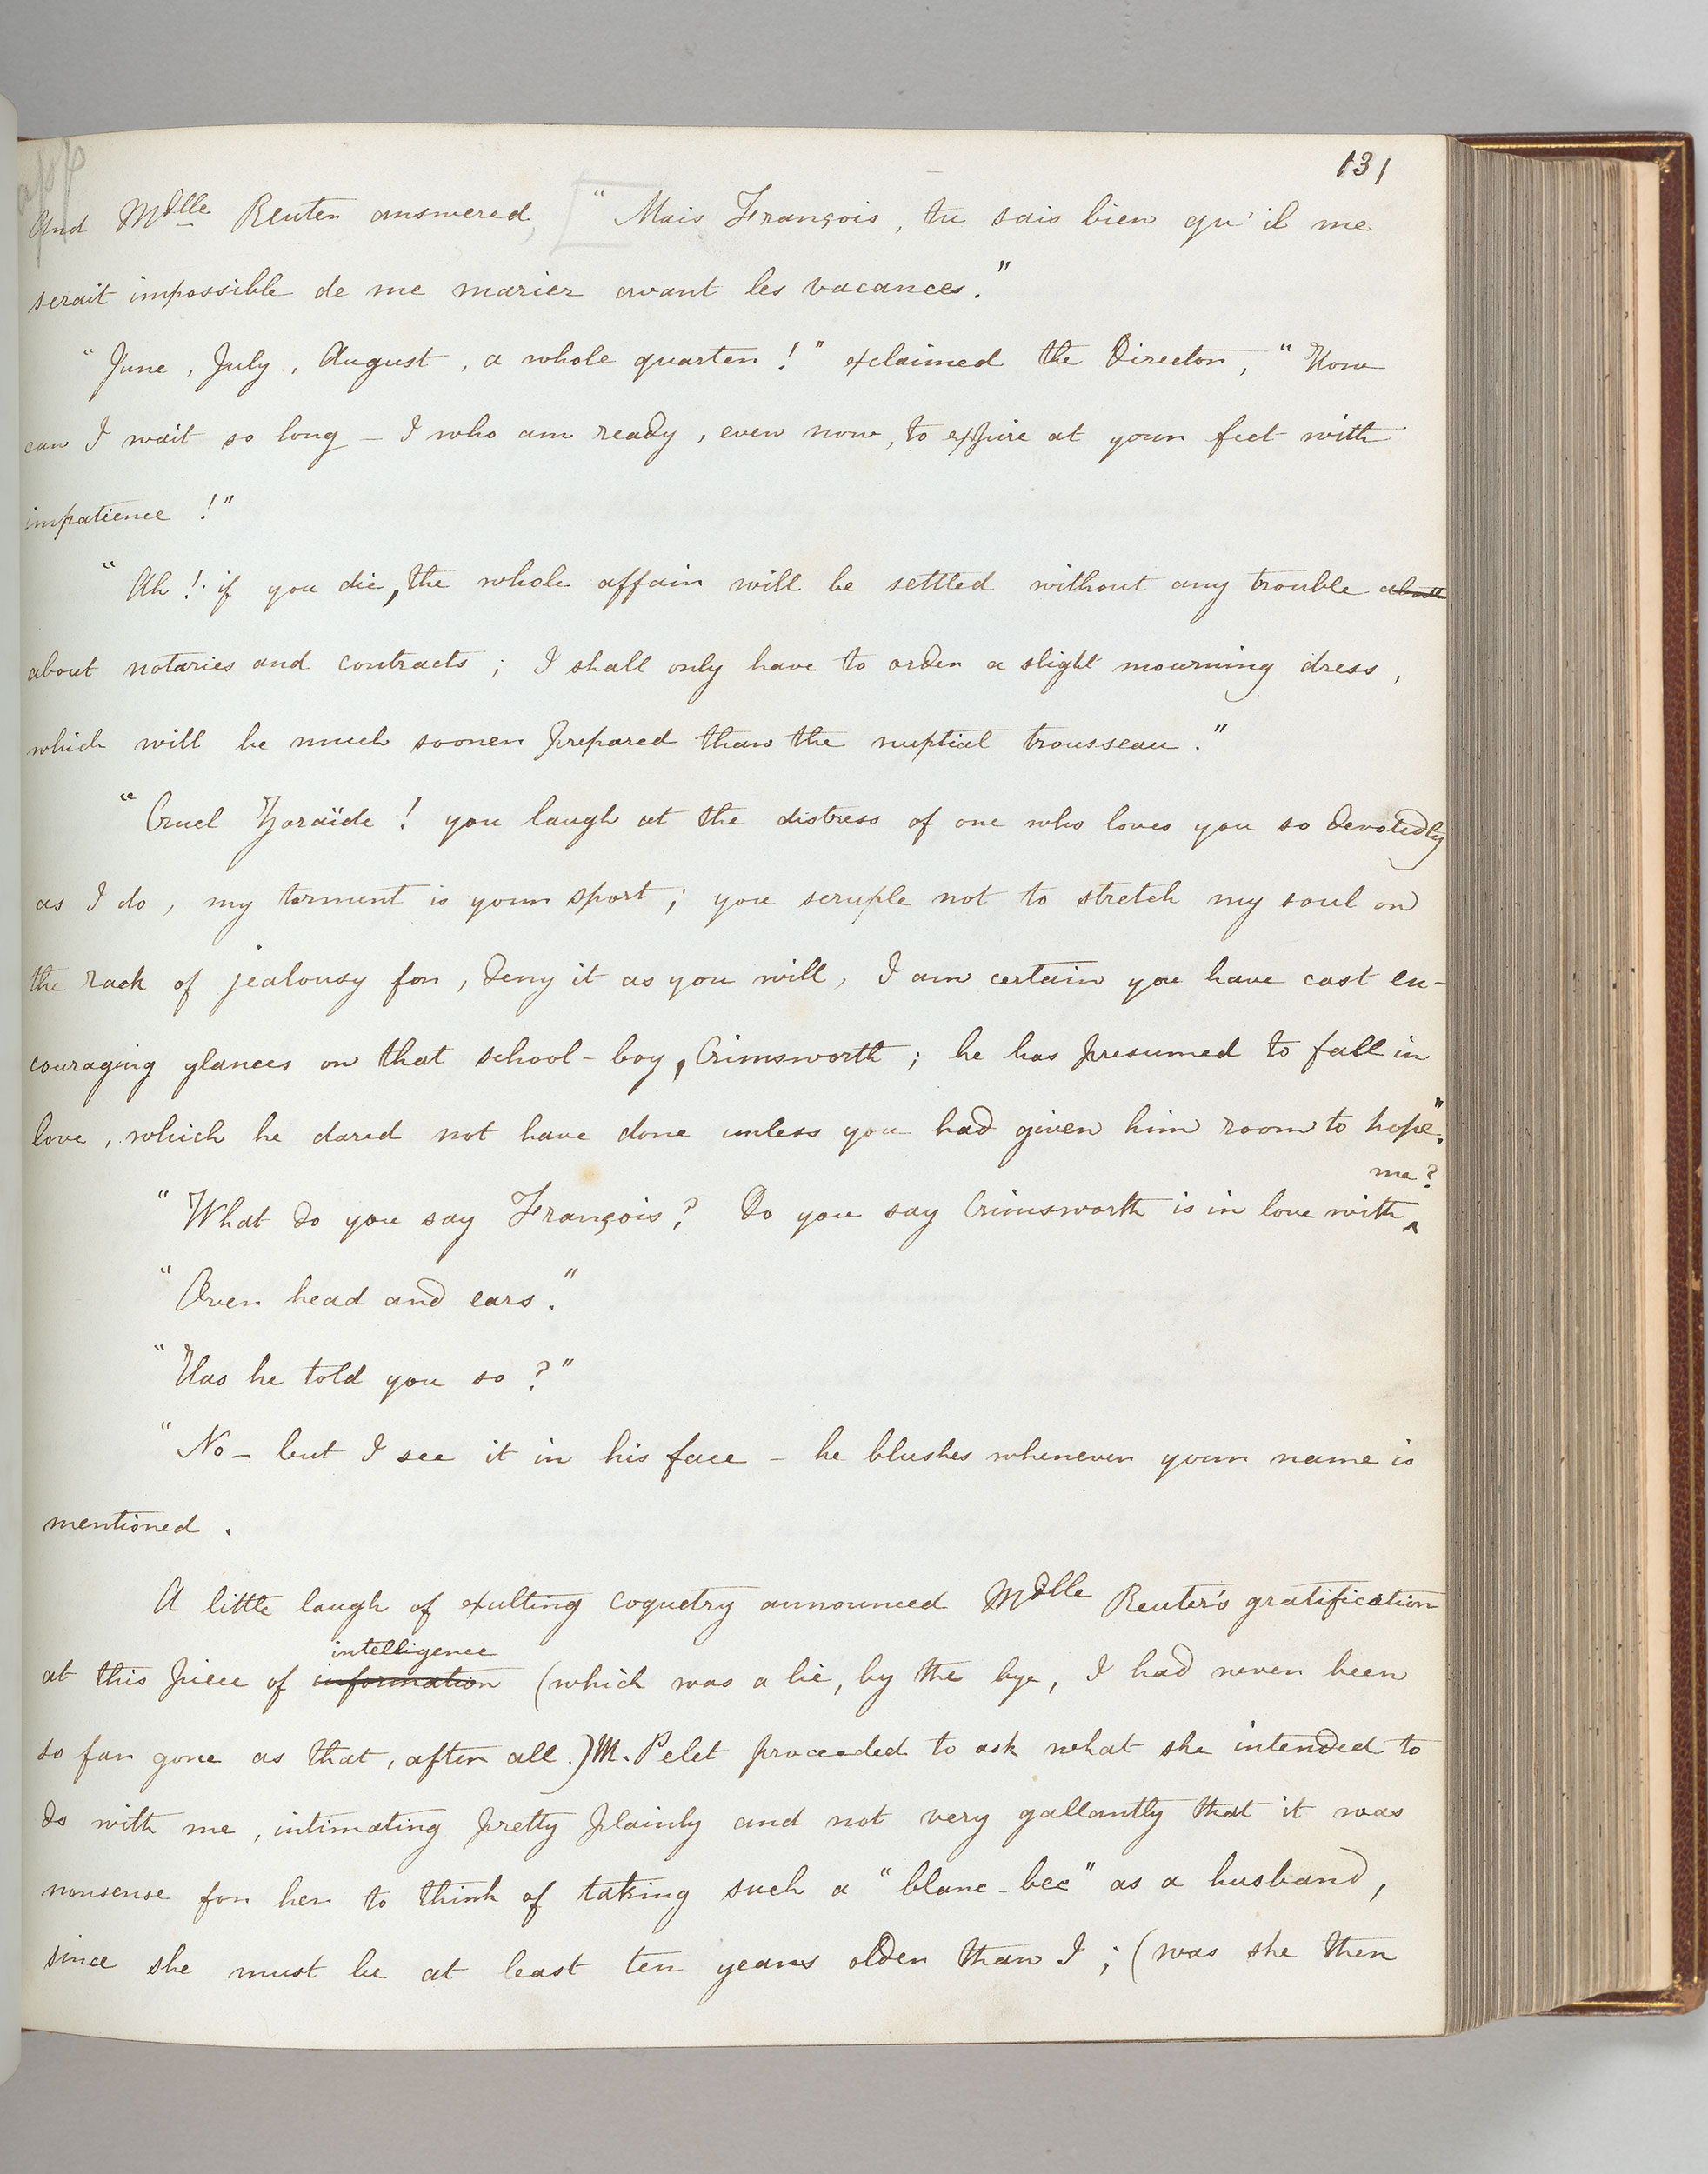 131
And Mdlle Reuter answered, "Mais François, tu sais bien qu'il me
serait impossible de me marier avant les vacances."
"June, July, August, a whole quarter!" exclaimed the Director, "How
can I wait so long – I who am ready, even now, to expire at your feet with
impatience!"
"Ah! if you die, the whole affair will be settled without any trouble about
about notaries and contracts; I shall only have to order a slight mourning dress,
which will be much sooner prepared than the nuptial trousseau."
"Cruel Zoraïde! you laugh at the distress of one who loves you so devotedly
as I do, my torment is your sport; you scruple not to stretch my soul on
the rack of jealousy for, deny it as you will, I am certain you have cast en-
couraging glances on that school-boy, Crimsworth; he has presumed to fall in
love, which he dared not have done unless you had given him room to hope."
me?
"What do you say François? Do you say Crimsworth is in love with
"Over head and ears."
"Has he told you so?"
"No – but I see it in his face – he blushes whenever your name is
mentioned.
A little laugh of exulting coquetry announced Mdlle Reuter's gratification
intelligence
at this piece of information (which was a lie, by the bye, I had never been
so far gone as that, after all.) M. Pelet proceeded to ask what she intended to
do with me, intimating pretty plainly and not very gallantly that it was
nonsense for her to think of taking such a "blanc-bec" as a husband,
since she must be at least ten years older than I; (was she then